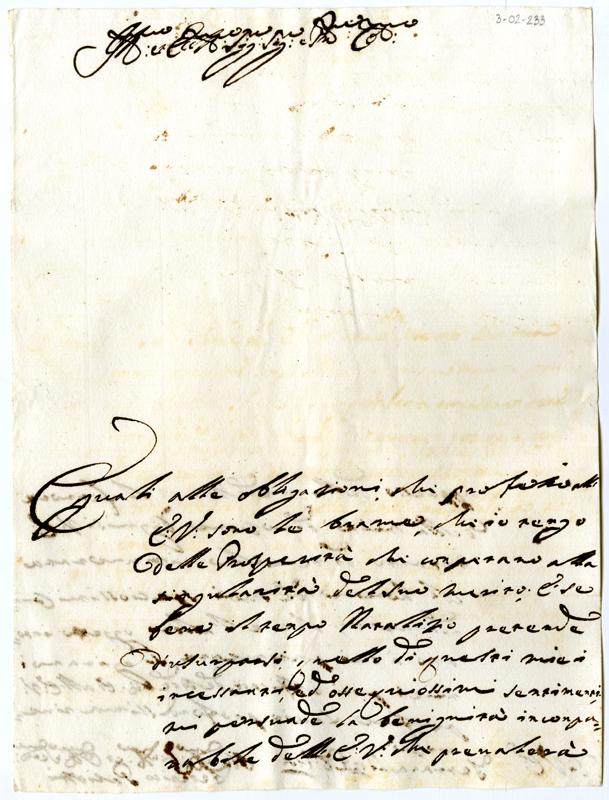 3-02-233
Ill.mo et Ecc.mo Sig. Sig. e P.ron Col.
Eguali alle obligazioni che professo all
E.V. sono le brame, che io tengo
delle Prosperità che corperano alla
singularità del suo merito; E se
bene il tempo Natalizio pretende
d'usurparsi, nello di questi miei
incessanti, ed ossequiosissimi sentimenti
mi persuade la benignità incompa-
rabile dell'E.V. che prevalerà